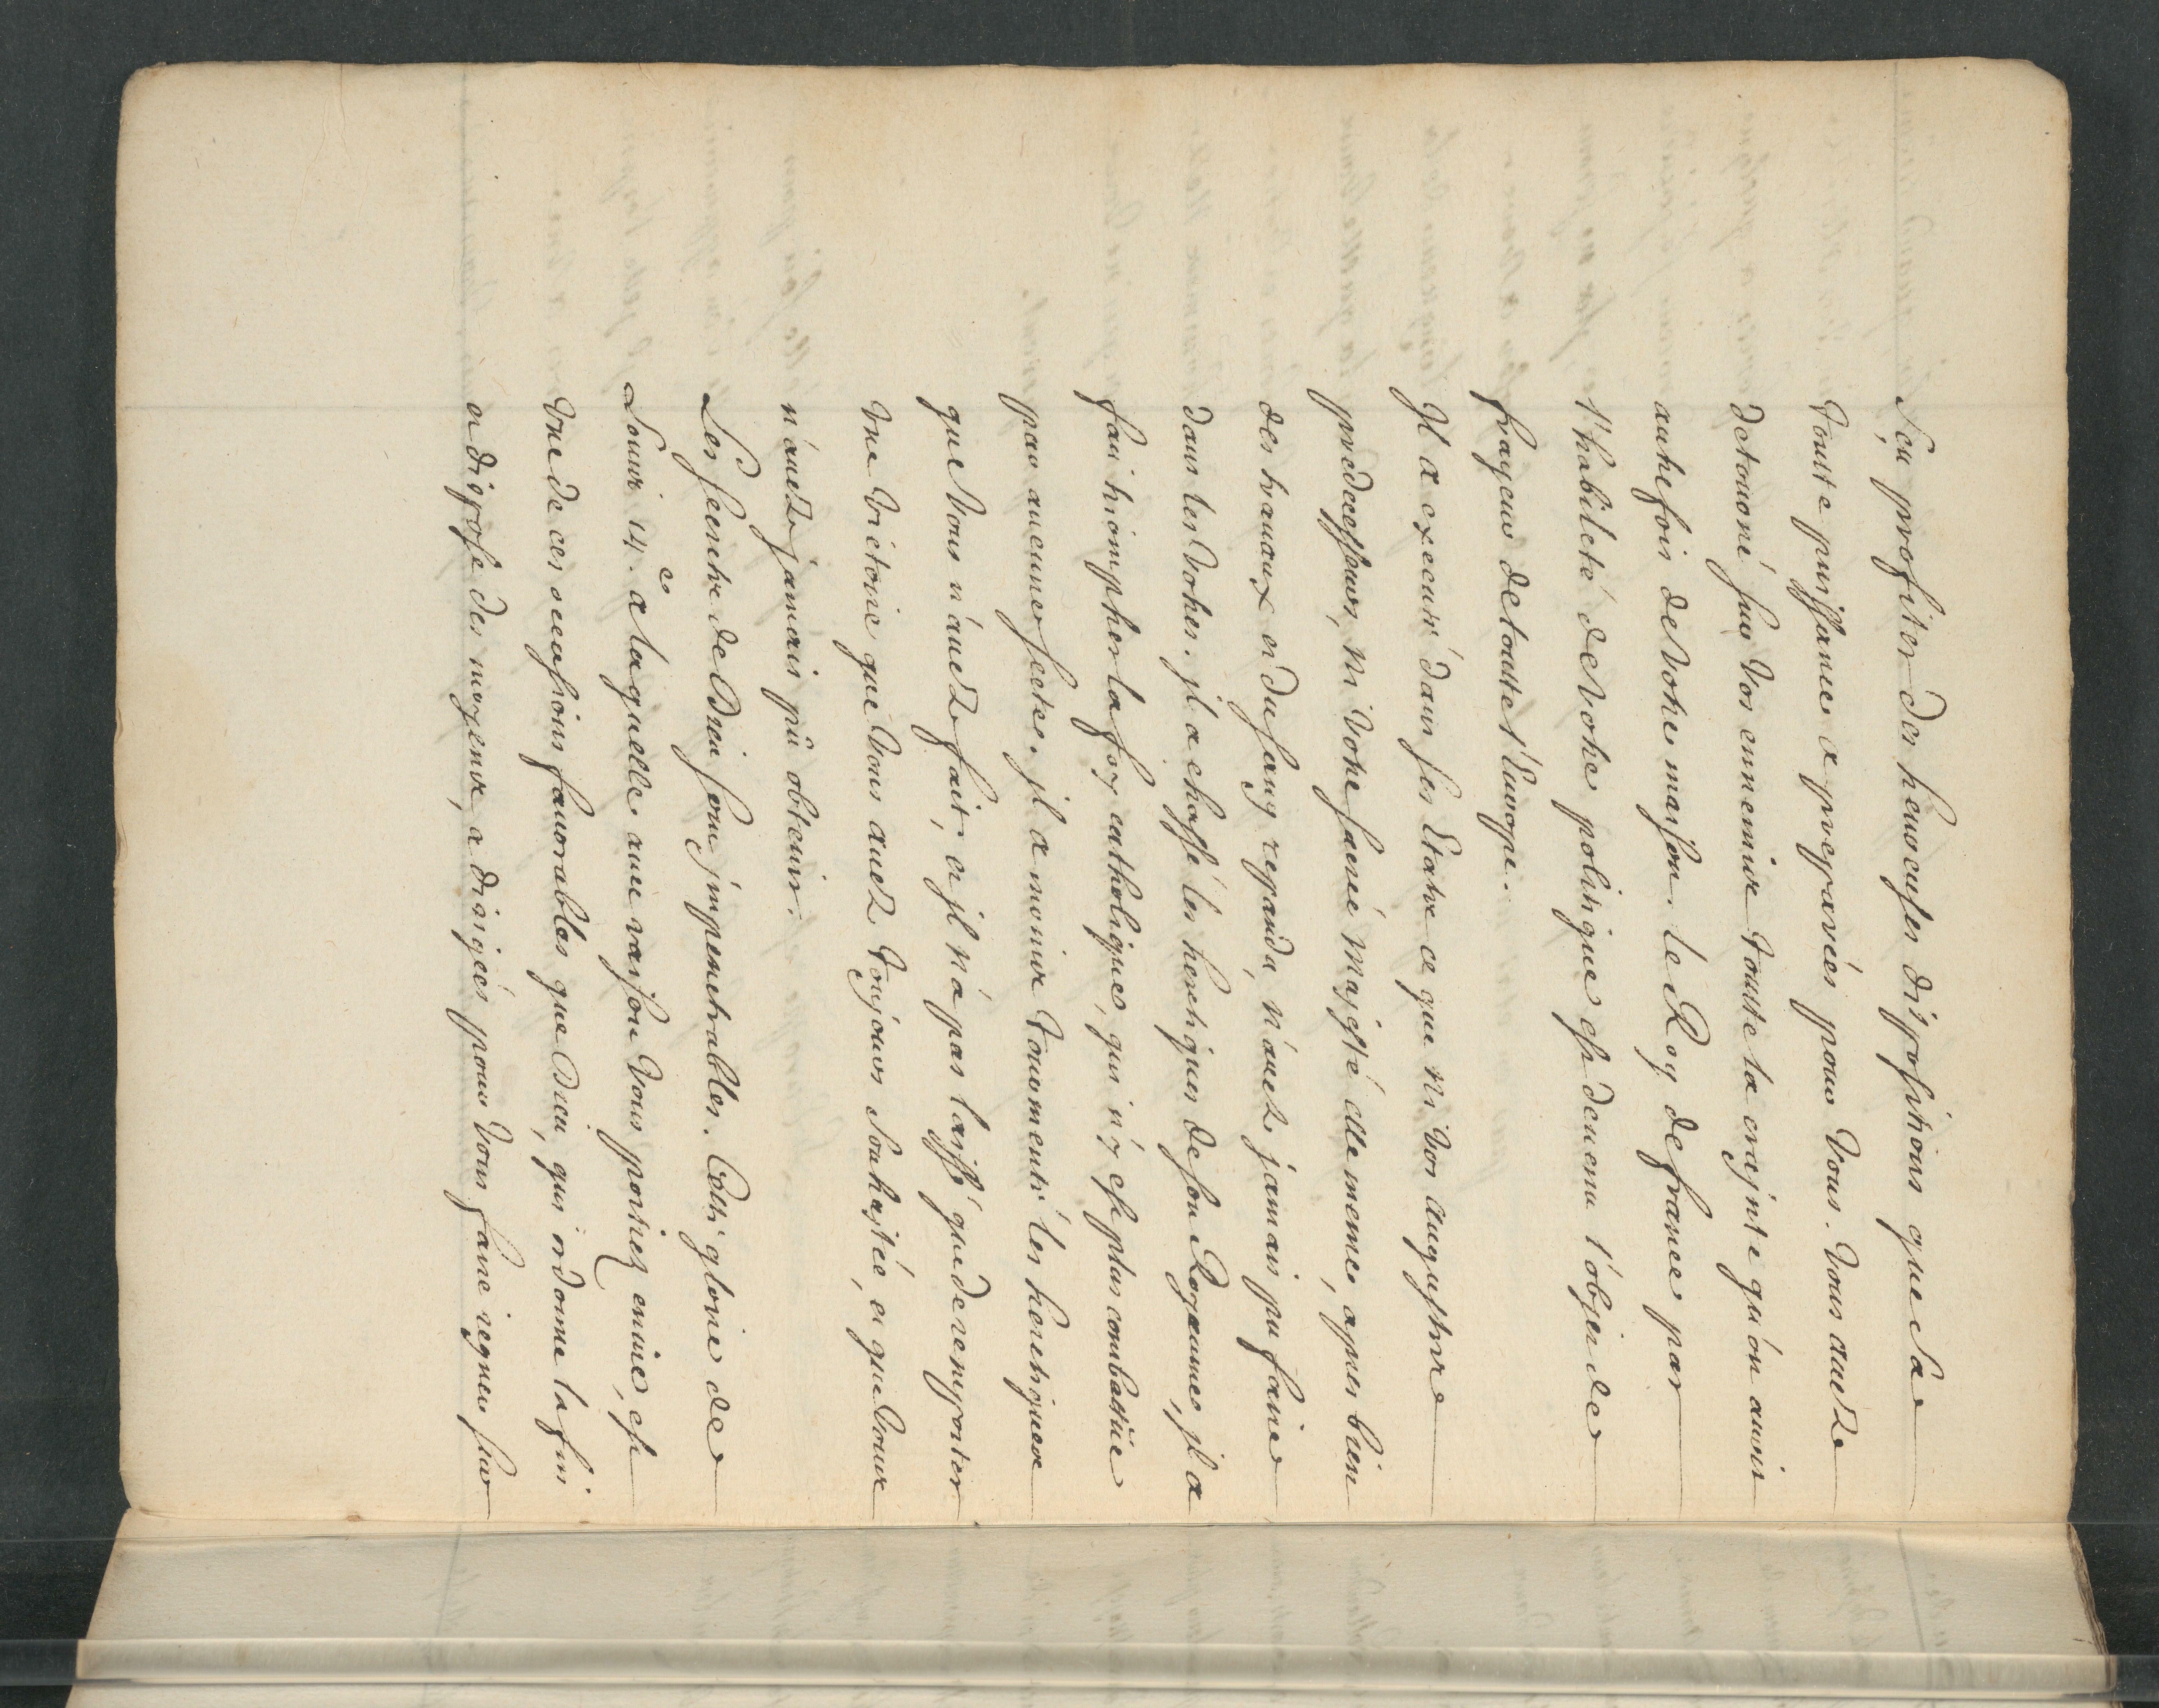 Sçu profiter des heureuses dispositions que Sa
Toutte puissance a preparées pour Vous. Vous auéz
detourné sur Vos ennemis toutte la crajnte qu'on auoit
autrefois de Votre maison. le Roy de france par
l'habileté de Votre politique est deuenu l'objet de
frayeur de toutte l'Europe.
Jl a executé dans ses Etats ce que ni Vos augustes
predecesseurs, ni Votre sacré Majesté elle meme, apres bien
des trauaux et du sang repandu, n'auez jamais pu faire
dans les Votres. jl a chassé les heretiques de son Royaume, jl a
fait triompher la foy catholique, qui n'y est plus combattüe
par aucune secte. jl a moins tourmenté les heretiques
que Vous n'auéz fait, et jl n'a pas laissé que de remporter
Vne Victoire que Vous auez toujours Souhajtée, et que Vous
n'auéz jamais pû obtenir.
Les secrets de Dieu sont jmpenetrables. Cette gloire de
Louis 14.e a laquelle auec raison Vous portiez enuie, est
Vne de ces occasions fauorables que Dieu, qui ordonne la fin
et dispose des moyens, a dirigées pour Vous faire regner sur